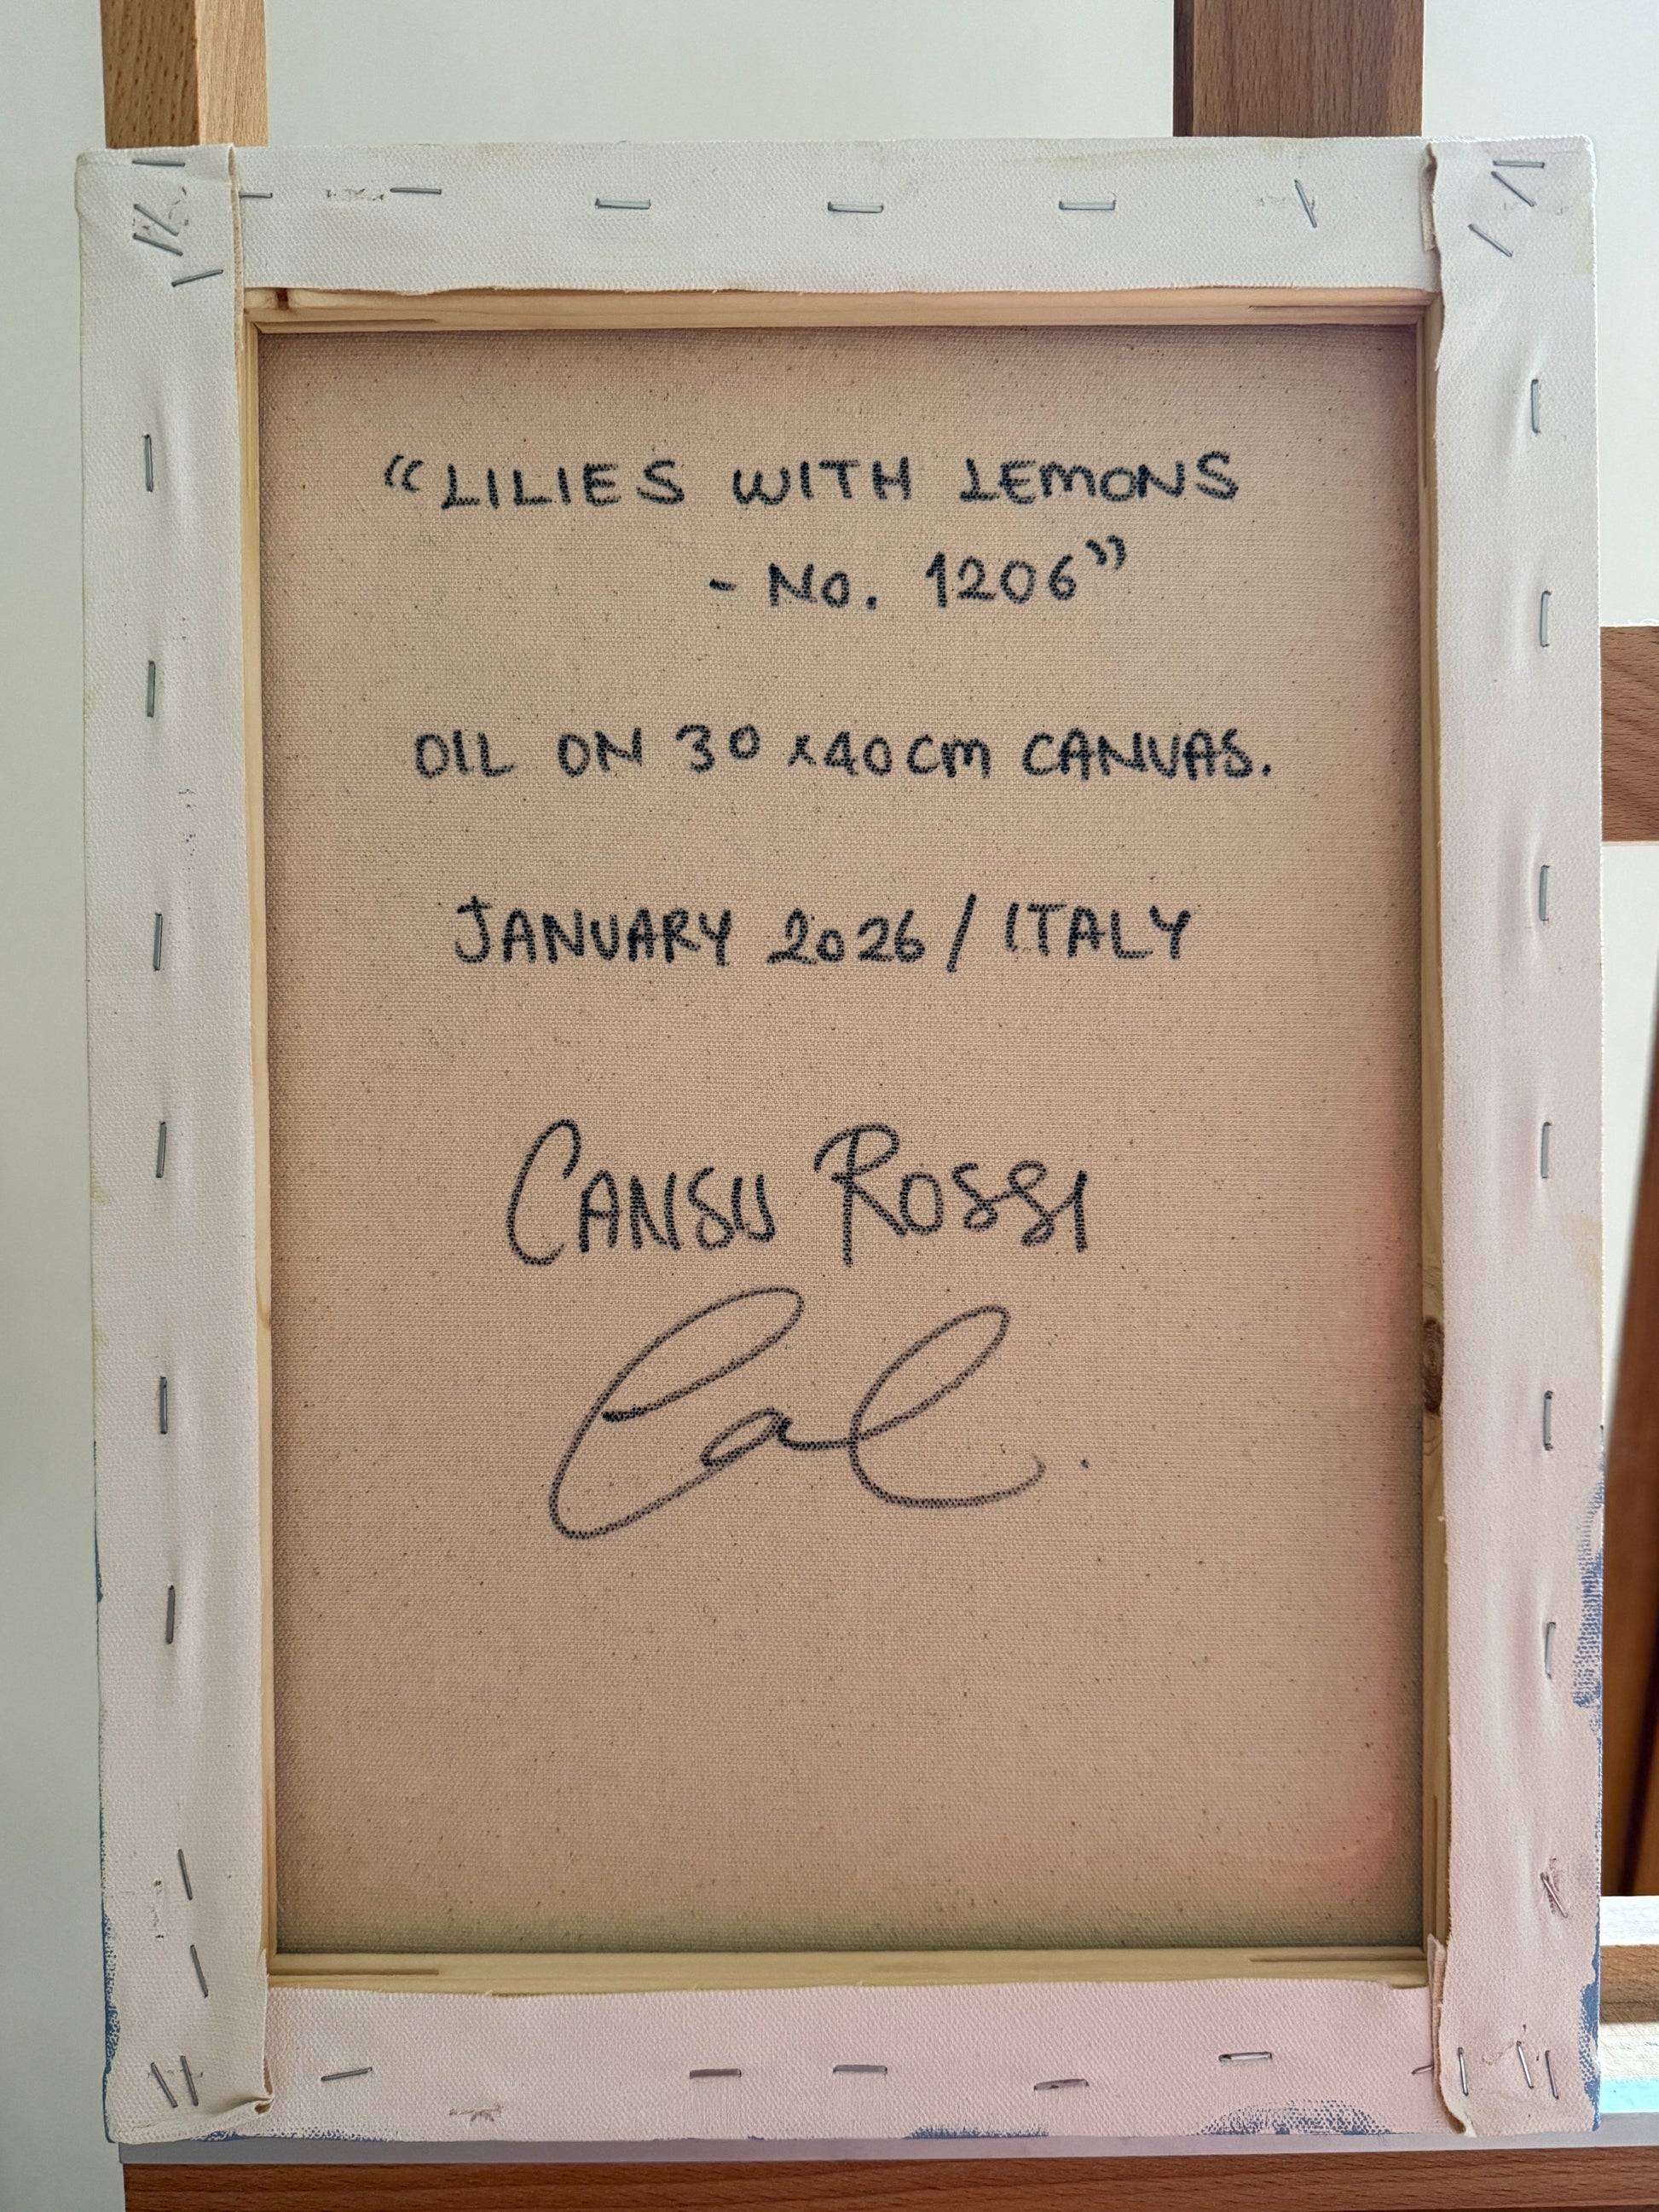 “LILIES WITH LEMONS
- No. 1206”
OIL ON 30 x40cm CANVAS.
JANUARY 2026 / ITALY
CANSU ROSSI